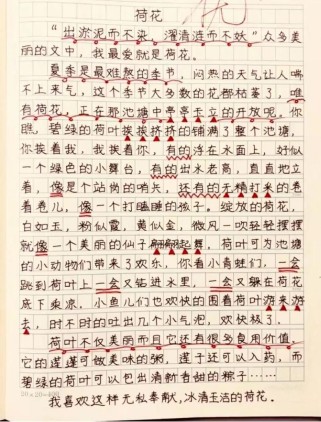 荷花
“出淤泥而不染,濯清涟而不妖”众多美
丽的文中,我最爱就是荷花。
夏季是最难熬的季节,闷热的天气让人喘
不上来气,这个季节大多数的花都枯萎了,唯
有荷花,正在那池塘中亭亭玉立的开放呢。你
瞧,碧绿的荷叶挨挨挤挤的铺满了整个池塘,
你挨着我,我挨着你,有的浮在水面上,好似
一个绿色的小舞台,有的出水老高,直直地立
着,像是个站岗的哨兵,还有的无精打采的卷
着卷儿,像一个打瞌睡的孩子。绽放的荷花,
白如玉,粉似霞,黄似金,微风一吹轻轻摆摆
就像一个美丽的仙子翩翩起舞,荷叶可为池塘
的小动物们带来了欢乐,你看小青蛙们,一会
跳到荷叶上一会又临进水里,一会又躲在荷花
底下乘凉,小鱼儿们也欢快的围着荷叶游来游
去,时不时的吐出几个小气泡,欢快极了。
荷叶不仅美丽而且它还有很多食用价值,
它的莲蓬可做美味的粥,莲子还可以入药,而
碧绿的荷叶可以包出清新香甜的粽子……
我喜欢这样无私奉献,冰清玉洁的荷花。